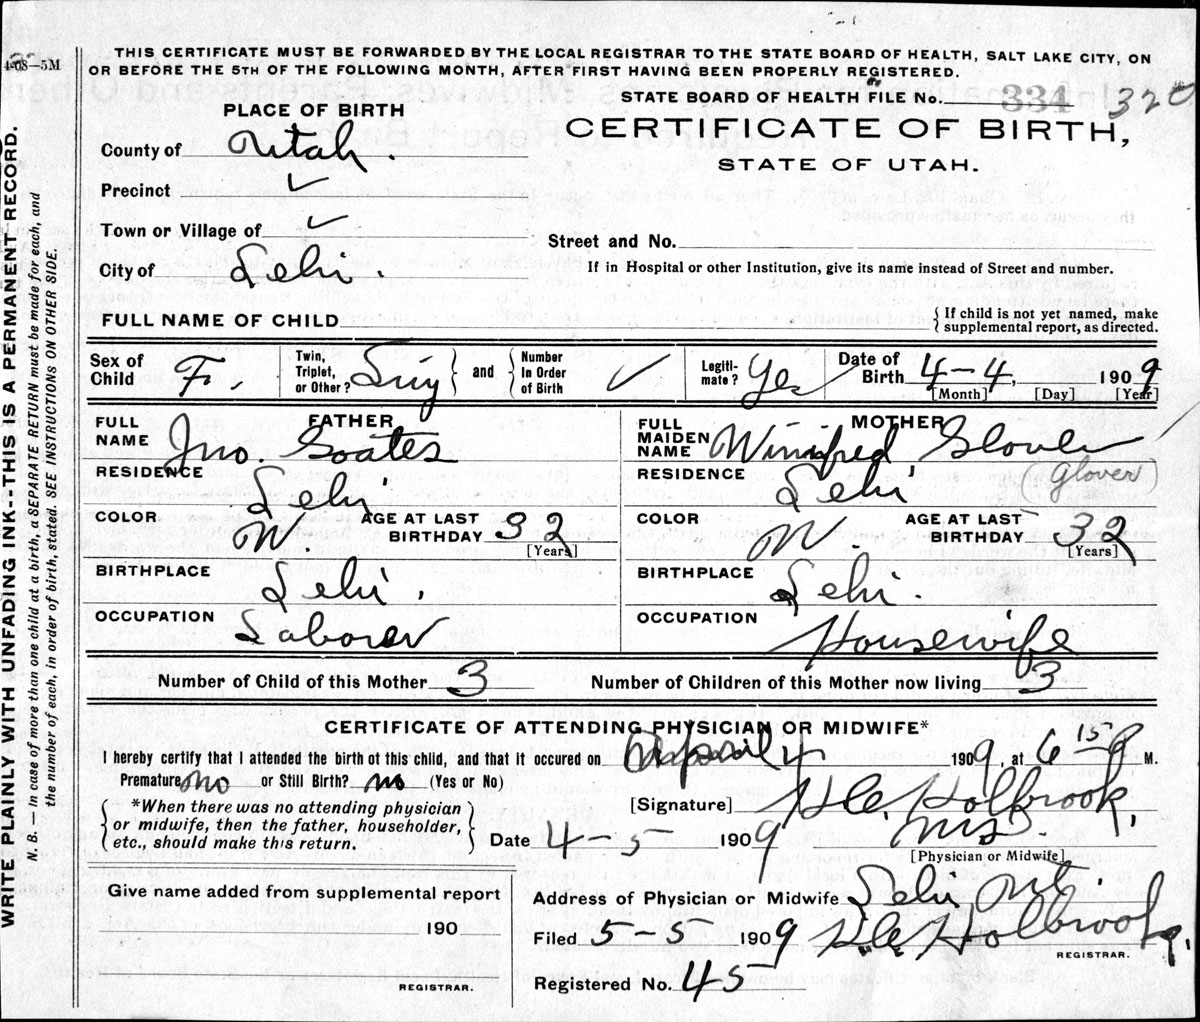 4-08—5M
THIS CERTIFICATE MUST BE FORWARDED BY THE LOCAL REGISTRAR TO THE STATE BOARD OF HEALTH, SALT LAKE CITY, ON
OR BEFORE THE 5TH OF THE FOLLOWING MONTH, AFTER FIRST HAVING BEEN PROPERLY REGISTERED.
PLACE OF BIRTH
STATE BOARD OF HEALTH FILE No. 334 320
CERTIFICATE OF BIRTH,
STATE OF UTAH.
County of Utah.
Precinct ✓
Town or Village of ✓
Street and No.
City of Lehi.
If in Hospital or other Institution, give its name instead of Street and number.
FULL NAME OF CHILD
{ If child is not yet named, make
supplemental report, as directed.
Sex of Child F.
Twin, Triplet, or Other? Sing } and { Number In Order of Birth ✓
Legiti- mate? Yes
Date of Birth 4-4, 1909
[Month] [Day] [Year]
FATHER
FULL NAME Jno. Goates
MOTHER
FULL MAIDEN NAME Winifred Glover
(Glover)
RESIDENCE Lehi
RESIDENCE Lehi
COLOR W. AGE AT LAST BIRTHDAY 32 [Years]
COLOR W. AGE AT LAST BIRTHDAY 32 [Years]
BIRTHPLACE Lehi.
BIRTHPLACE Lehi.
OCCUPATION Laborer
OCCUPATION Housewife
Number of Child of this Mother 3
Number of Children of this Mother now living 3
CERTIFICATE OF ATTENDING PHYSICIAN OR MIDWIFE*
I hereby certify that I attended the birth of this child, and that it occured on April 4 1909, at 6 15 P M.
Premature no or Still Birth? no (Yes or No)
{ *When there was no attending physician
or midwife, then the father, householder,
etc., should make this return. }
[Signature] Holbrook,
Date 4-5 1909 MD.
[Physician or Midwife]
Give name added from supplemental report
190
REGISTRAR.
Address of Physician or Midwife Lehi, Ut.
Filed 5-5 1909 Holbrook
REGISTRAR.
Registered No. 45
WRITE PLAINLY WITH UNFADING INK--THIS IS A PERMANENT RECORD.
N. B. — In case of more than one child at a birth, a SEPARATE RETURN must be made for each, and
the number of each, in order of birth, stated. SEE INSTRUCTIONS ON OTHER SIDE.